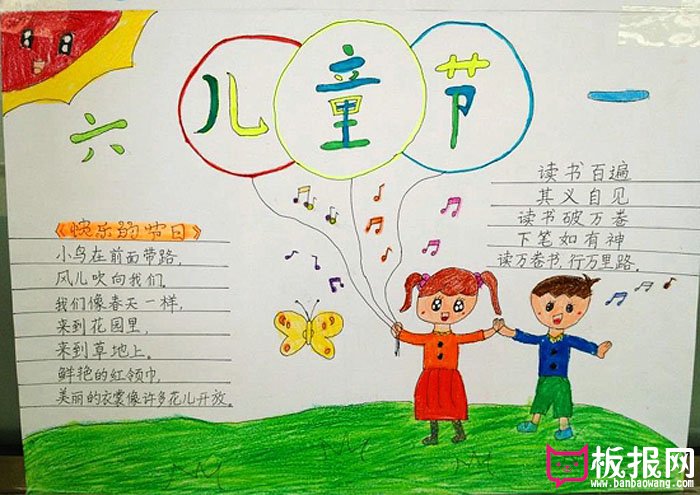 六 儿童节 一
《快乐的节日》
小鸟在前面带路,
风儿吹向我们。
我们像春天一样,
来到花园里,
来到草地上。
鲜艳的红领巾,
美丽的衣裳像许多花儿开放。
读书百遍
其义自见
读书破万卷
下笔如有神
读万卷书,行万里路。
板报网
www.banbaowang.com